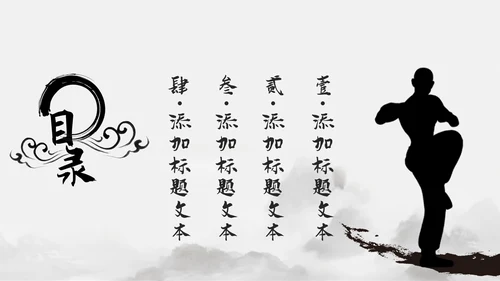 目录
壹·添加标题文本
贰·添加标题文本
叁·添加标题文本
肆·添加标题文本